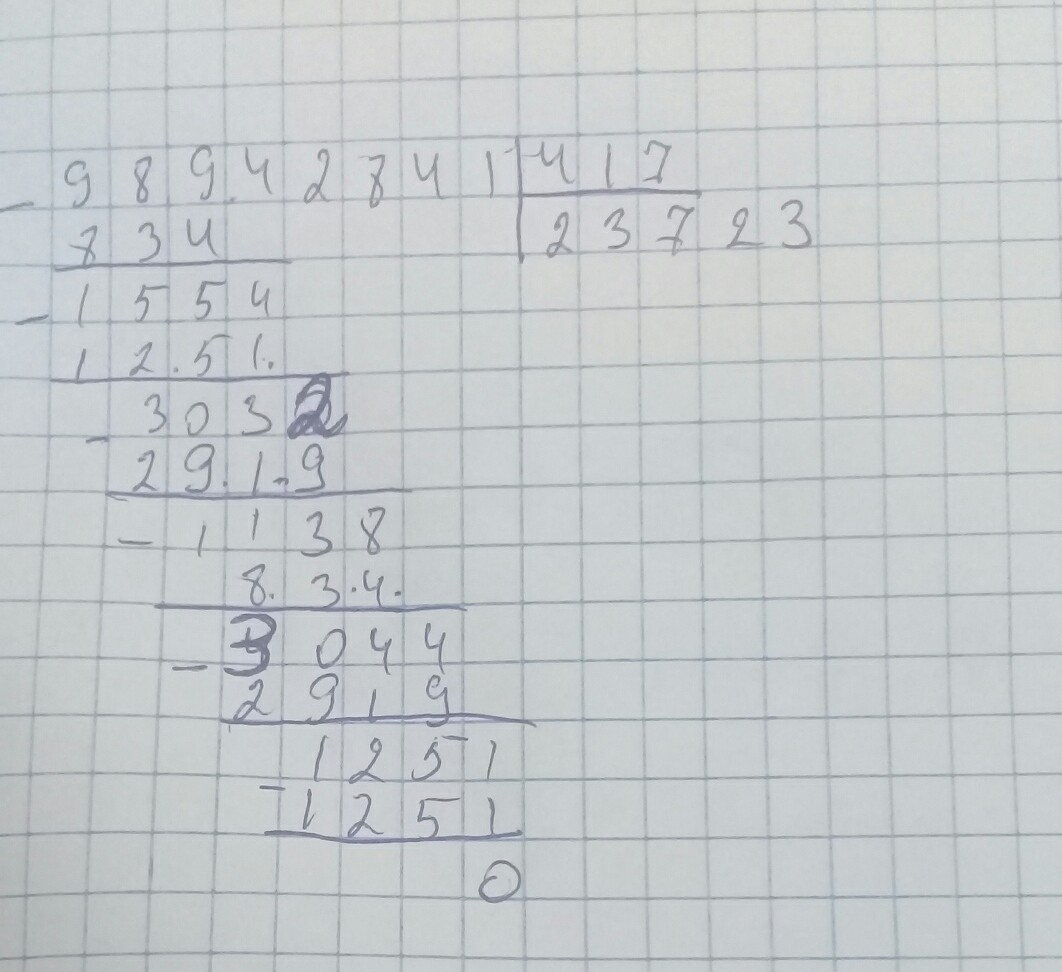 - 9 8 9 4 2 8 4 1 | 4 1 7
8 3 4 | 2 3 7 2 3
- 1 5 5 4
1 2 5 1
- 3 0 3 2
2 9 1 9
- 1 1 3 8
8 3 4
- 3 0 4 4
2 9 1 9
- 1 2 5 1
1 2 5 1
0